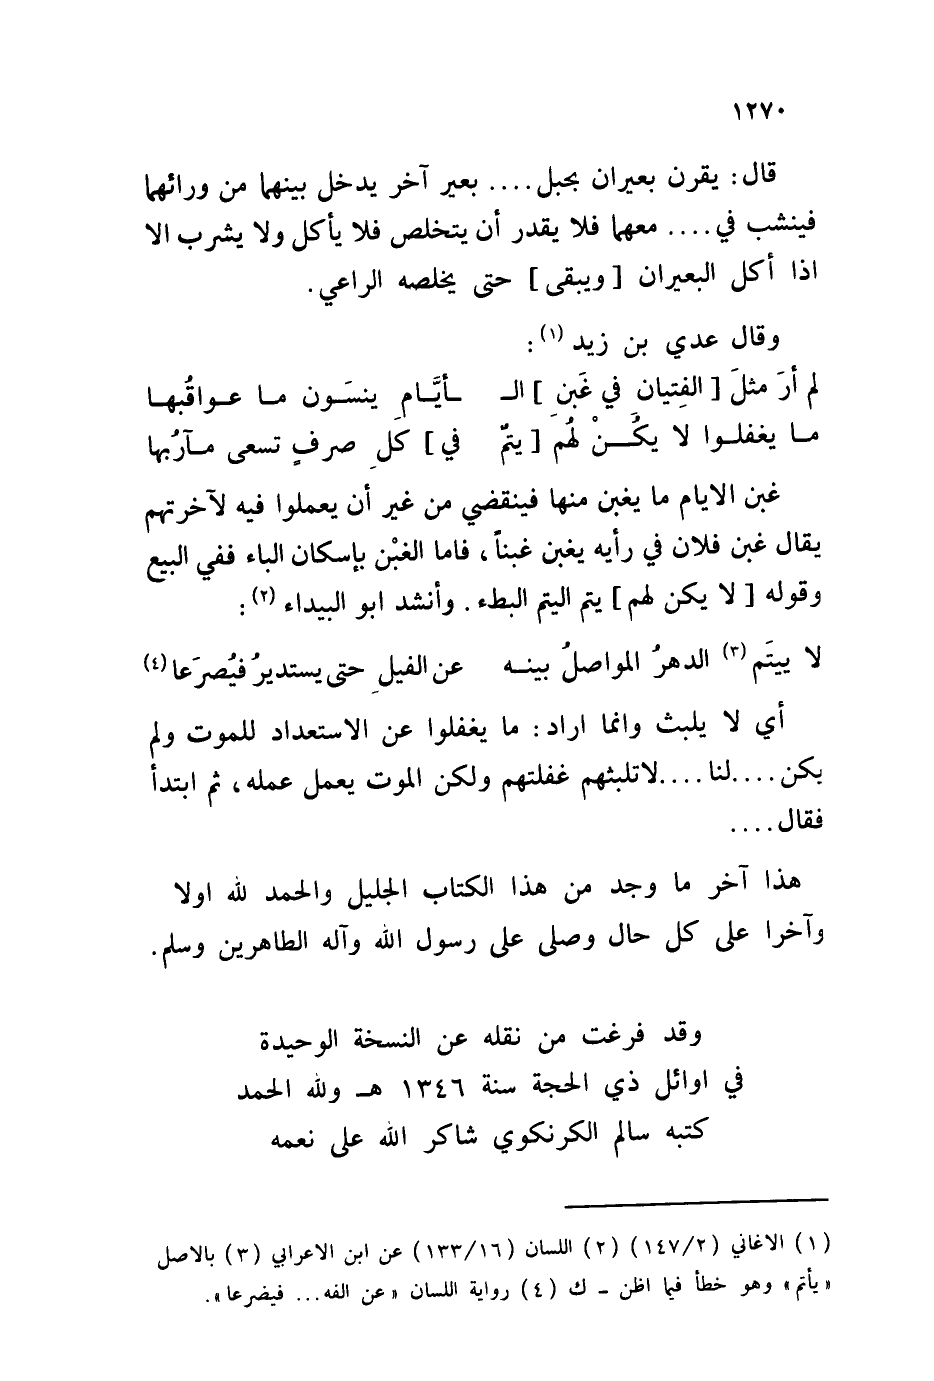 ١٢٧٠
قال: يقرن بعيران بحبل.... بعير آخر يدخل بينهما من ورائهما
فينشب في.... معهما فلا يقدر أن يتخلص فلا يأكل ولا يشرب الا
اذا أكل البعيران [ويبقى] حتى يخلصه الراعي.
وقال عدي بن زيد (١):
لم أرَ مثلَ [الفِتيان في غَبن] الـ ـأيَّـام ينسَـون ما عـواقُبهـا
مـا يغفلـوا لا يكُـنْ لهُم [يتمٌ في] كل صرفٍ تسعى مـآرُبها
غبن الايام ما يغبن منها فينقضي من غير أن يعملوا فيه لآخرتهم
يقال غبن فلان في رأيه يغبن غبناً، فاما الغبْن بإسكان الباء ففي البيع
وقوله [لا يكن لهم] يتم اليتم البطء. وأنشد ابو البيداء (٢):
لا ييتَم (٣) الدهرُ المواصلُ بينـه عن الفيلِ حتى يستديرُ فيُصرَعا (٤)
أي لا يلبث وانما اراد: ما يغفلوا عن الاستعداد للموت ولم
يكن....لنا....لاتلبثهم غفلتهم ولكن الموت يعمل عمله، ثم ابتدأ
فقال....
هذا آخر ما وجد من هذا الكتاب الجليل والحمد لله اولا
وآخرا على كل حال وصلى على رسول الله وآله الطاهرين وسلم.
وقد فرغت من نقله عن النسخة الوحيدة
في اوائل ذي الحجة سنة ١٣٤٦ هـ ولله الحمد
كتبه سالم الكرنكوي شاكر الله على نعمه
(١) الاغاني (١٤٧/٢) (٢) اللسان (١٣٣/١٦) عن ابن الاعرابي (٣) بالاصل
«يأتم» وهو خطأ فيما اظن - ك (٤) رواية اللسان «عن الفه... فيضرعا».